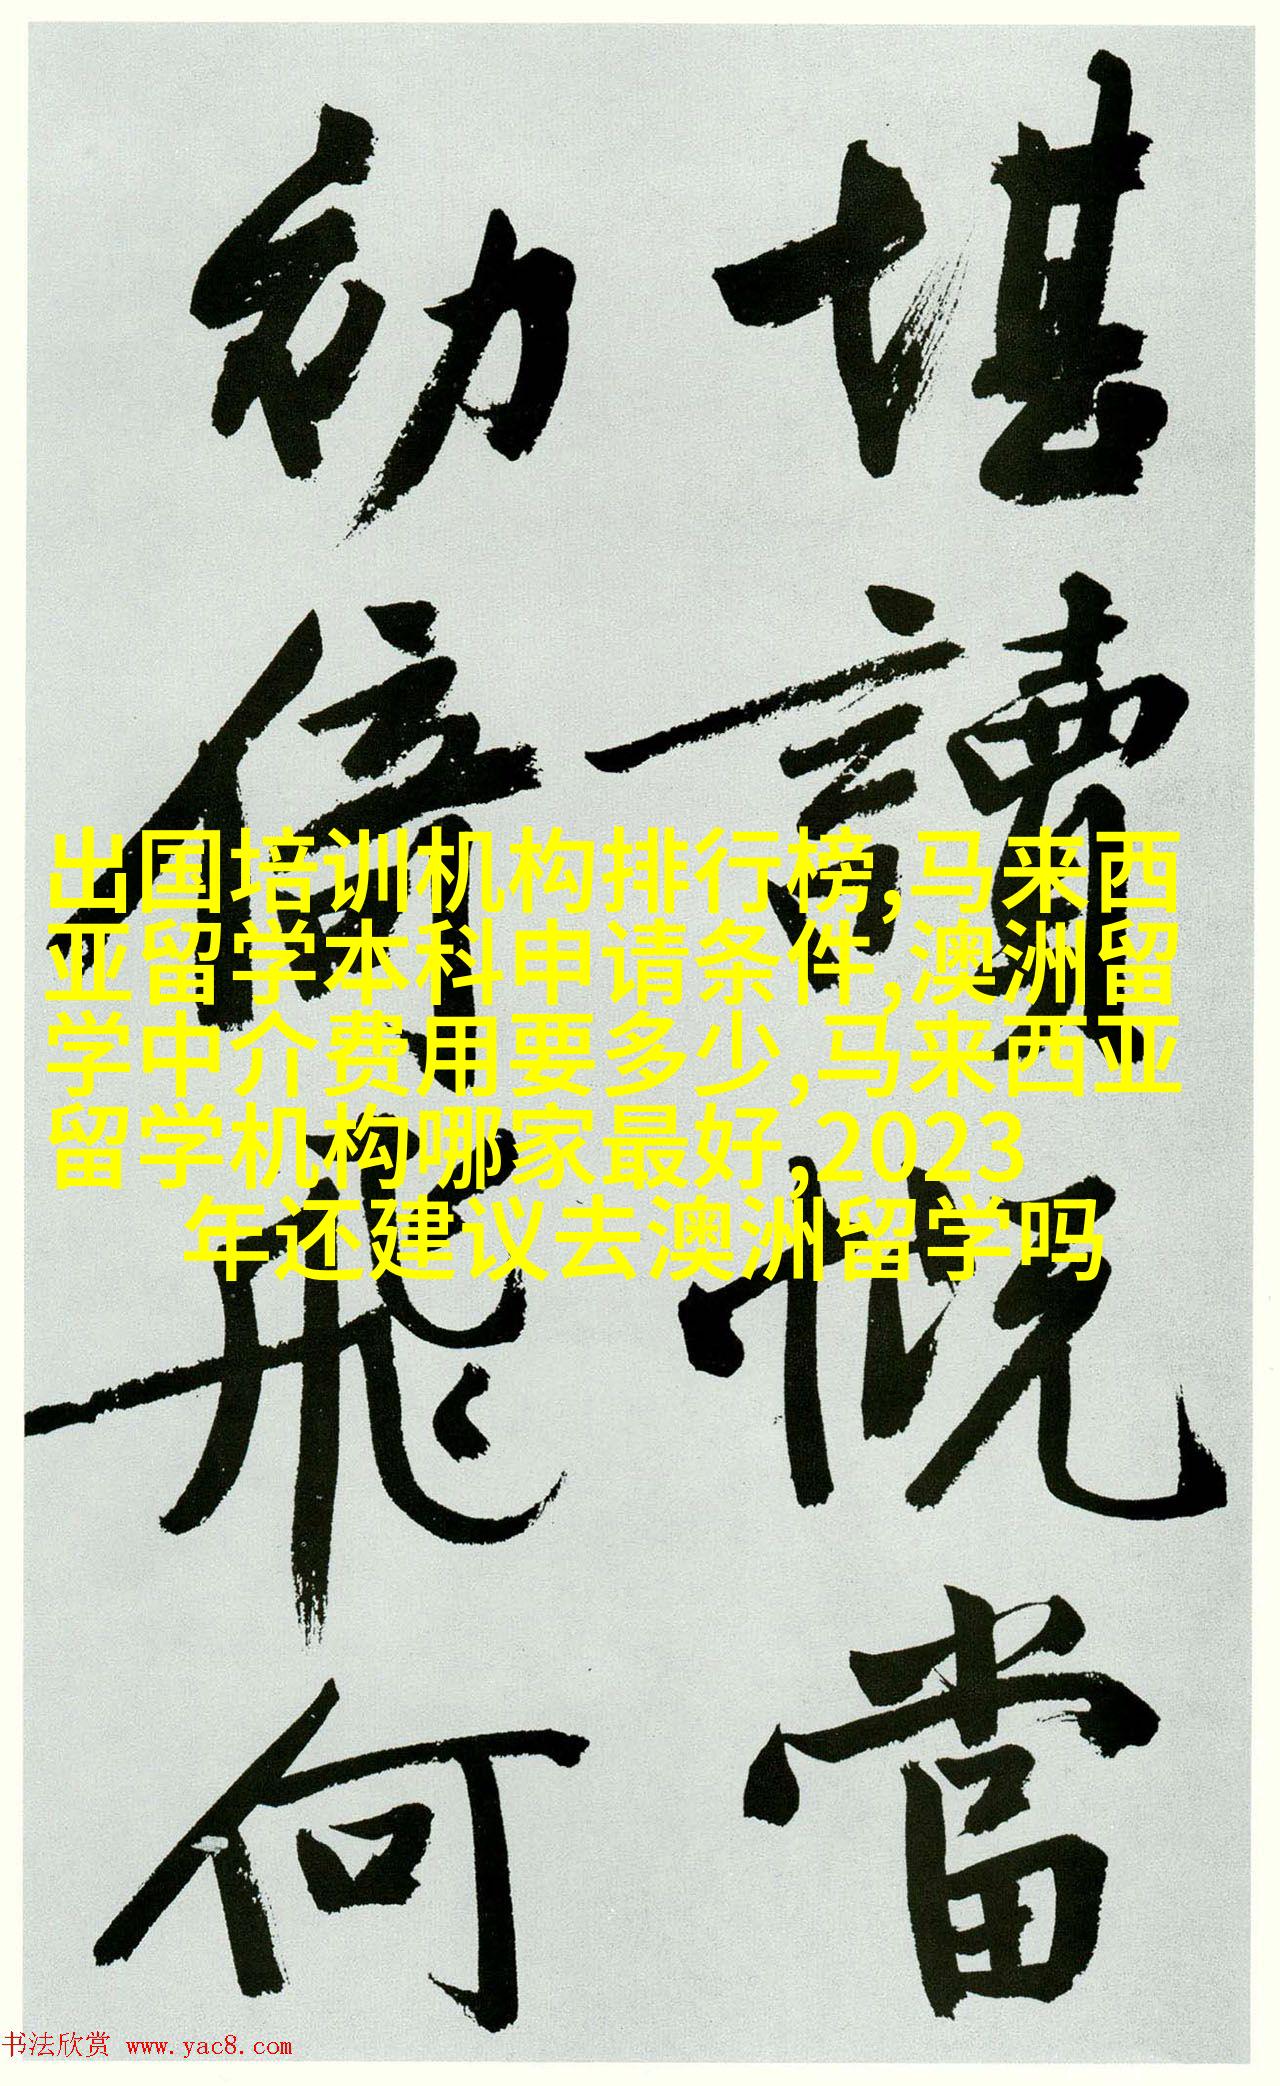 堪讀慨當
初倍飛何
出国培训机构排行榜,马来西
亚留学本科申请条件,澳洲留
学中介费用要多少,马来西亚
留学机构哪家最好,2023
年还建议去澳洲留学吗
书法欣赏 www.yac8.com